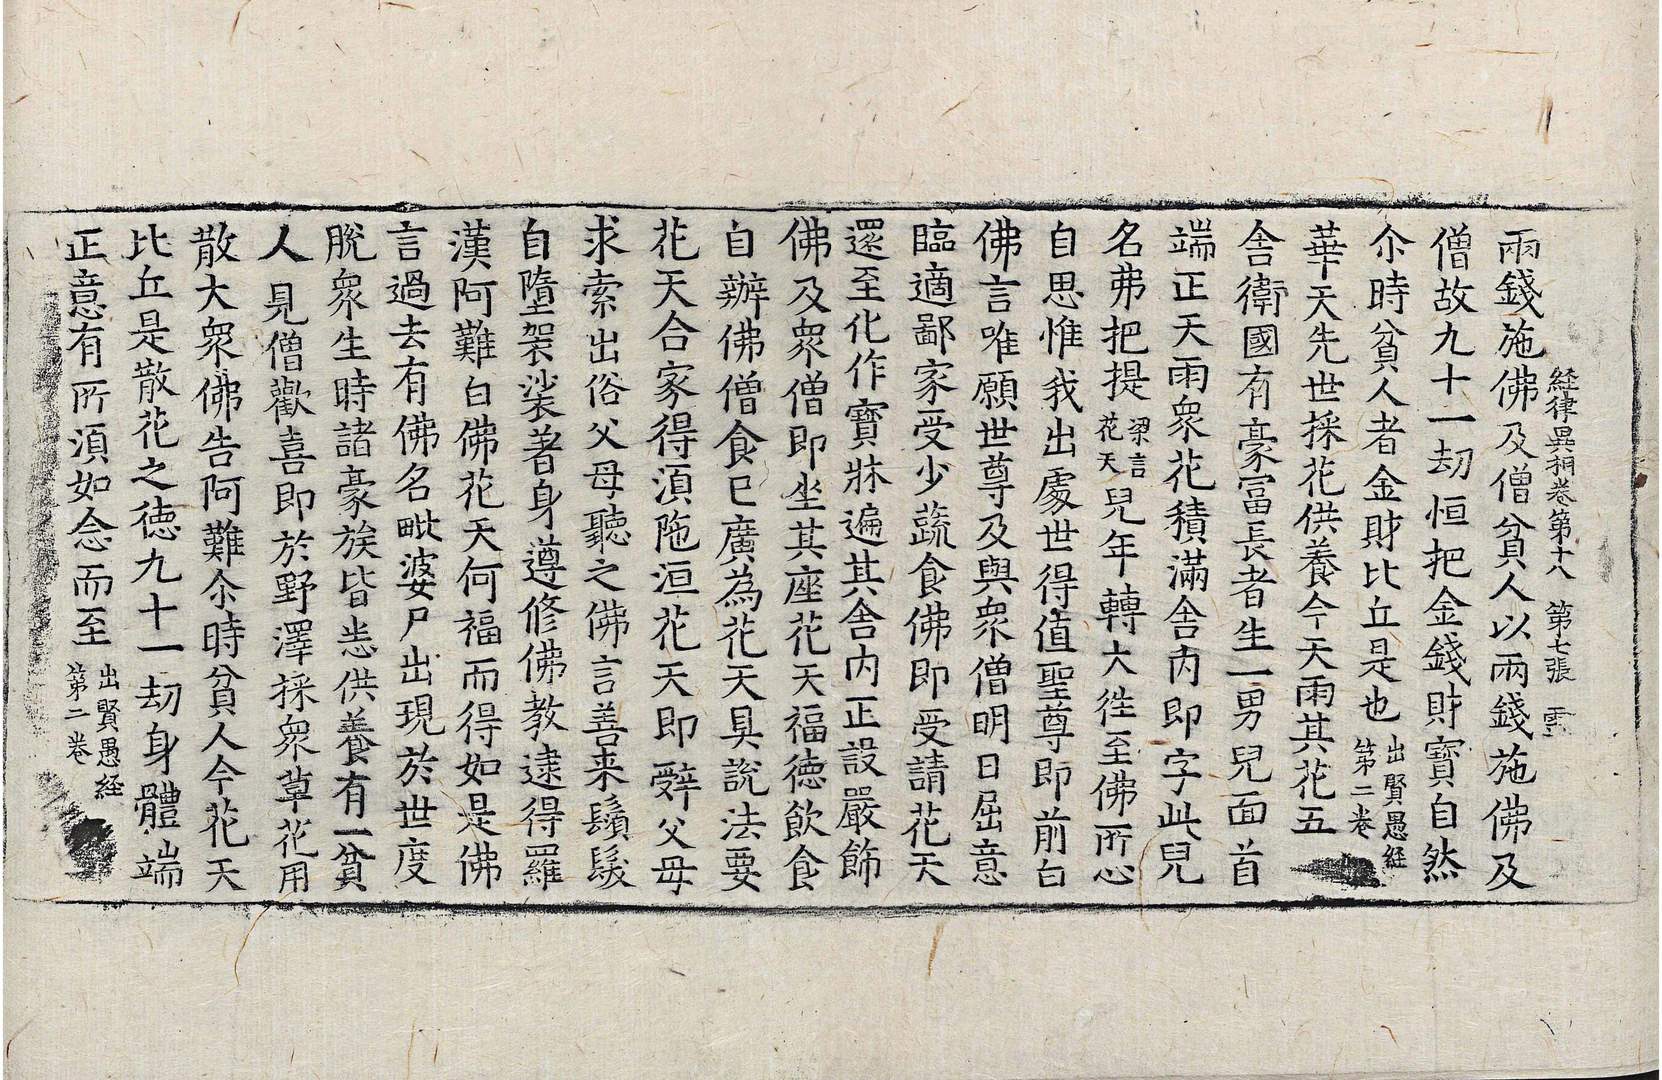 経律異相卷第十八 第七張 雲
兩錢施佛及僧貧人以兩錢施佛及
僧故九十一劫恒把金錢財寶自然
尒時貧人者金財比丘是也出賢愚経第二卷
華天先世採花供養今天雨其花五
舍衛國有豪富長者生一男兒面首
端正天雨衆花積滿舍内即字此兒
名弗把提梁言花天兒年轉大徃至佛所心
自思惟我出處世得值聖尊即前白
佛言唯願世尊及與衆僧明日屈意
臨適鄙家受少蔬食佛即受請花天
還至化作寶牀遍其舍内正設嚴飾
佛及衆僧即坐其座花天福徳飲食
自辦佛僧食已廣為花天具說法要
花天合家得湏陁洹花天即辭父母
求索出俗父母聽之佛言善来鬚髮
自墮袈裟著身遵修佛教逮得羅
漢阿難白佛花天何福而得如是佛
言過去有佛名毗婆尸出現於世度
脫衆生時諸豪族皆悉供養有一貧
人見僧歡喜即於野澤採衆草花用
散大衆佛告阿難尒時貧人今花天
比丘是散花之徳九十一劫身體端
正意有所湏如念而至出賢愚経第二卷